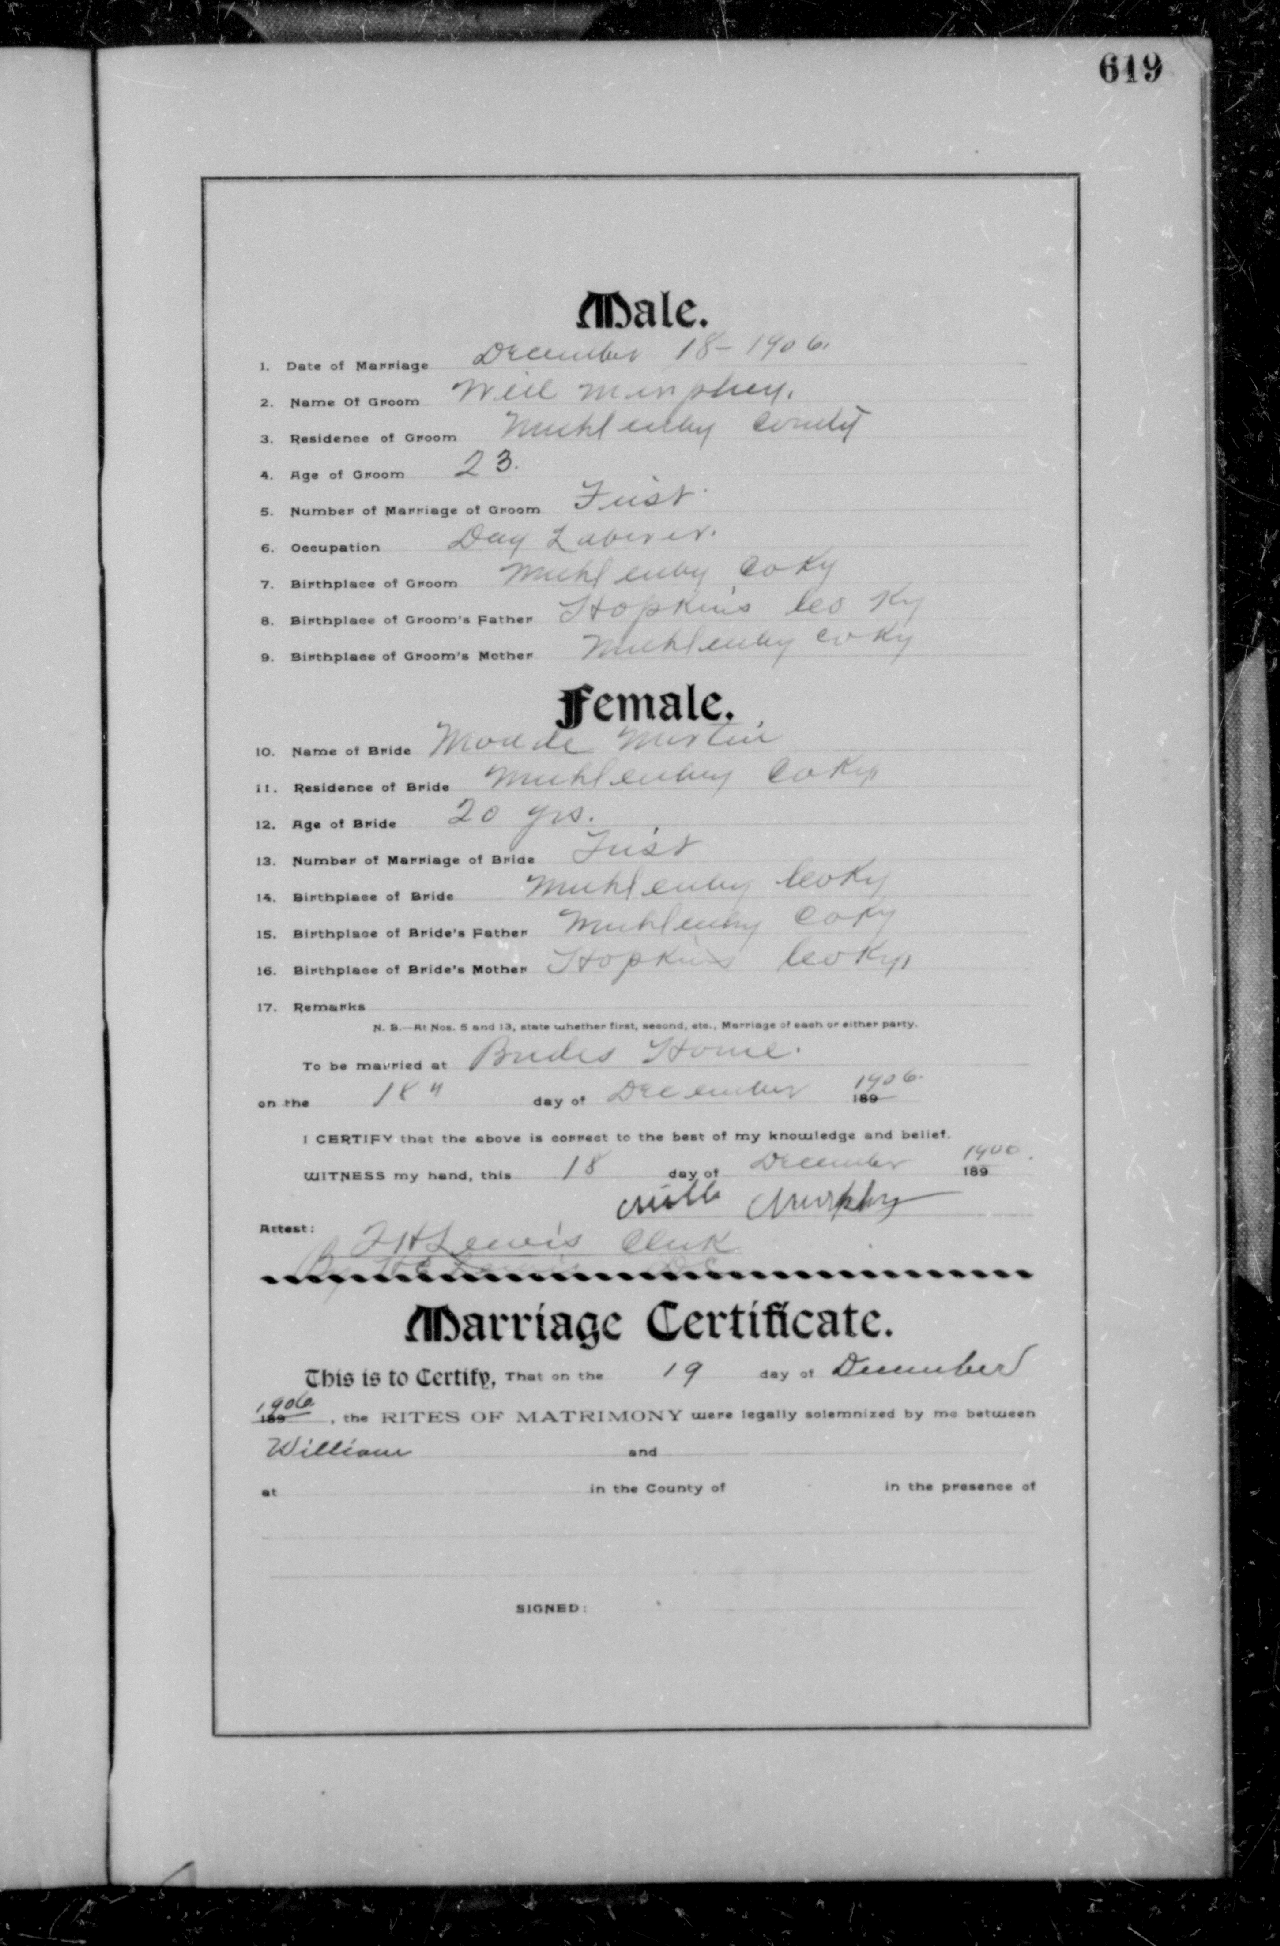 619
Male.
1. Date of Marriage December 18 - 1906.
2. Name Of Groom Will Murphey.
3. Residence of Groom Muhlenbg County
4. Age of Groom 23.
5. Number of Marriage of Groom First.
6. Occupation Day Laborer.
7. Birthplace of Groom Muhlenbg Co Ky
8. Birthplace of Groom's Father Hopkins Co Ky
9. Birthplace of Groom's Mother Muhlenbg Co Ky
Female.
10. Name of Bride Maude Martin
11. Residence of Bride Muhlenbg Co Ky
12. Age of Bride 20 yrs.
13. Number of Marriage of Bride First
14. Birthplace of Bride Muhlenbg Co Ky
15. Birthplace of Bride's Father Muhlenbg Co Ky
16. Birthplace of Bride's Mother Hopkins Co Ky
17. Remarks
N. B.—At Nos. 5 and 13, state whether first, second, etc., Marriage of each or either party.
To be married at Brides Home.
on the 18" day of December 1906. 189
I CERTIFY that the above is correct to the best of my knowledge and belief.
WITNESS my hand, this 18 day of December 1906. 189
Murphy
Attest: Lewis Clerk
By D.C.
Marriage Certificate.
This is to Certify, That on the 19 day of December
1906 189 , the RITES OF MATRIMONY were legally solemnized by me between
William and
at in the County of in the presence of
SIGNED: